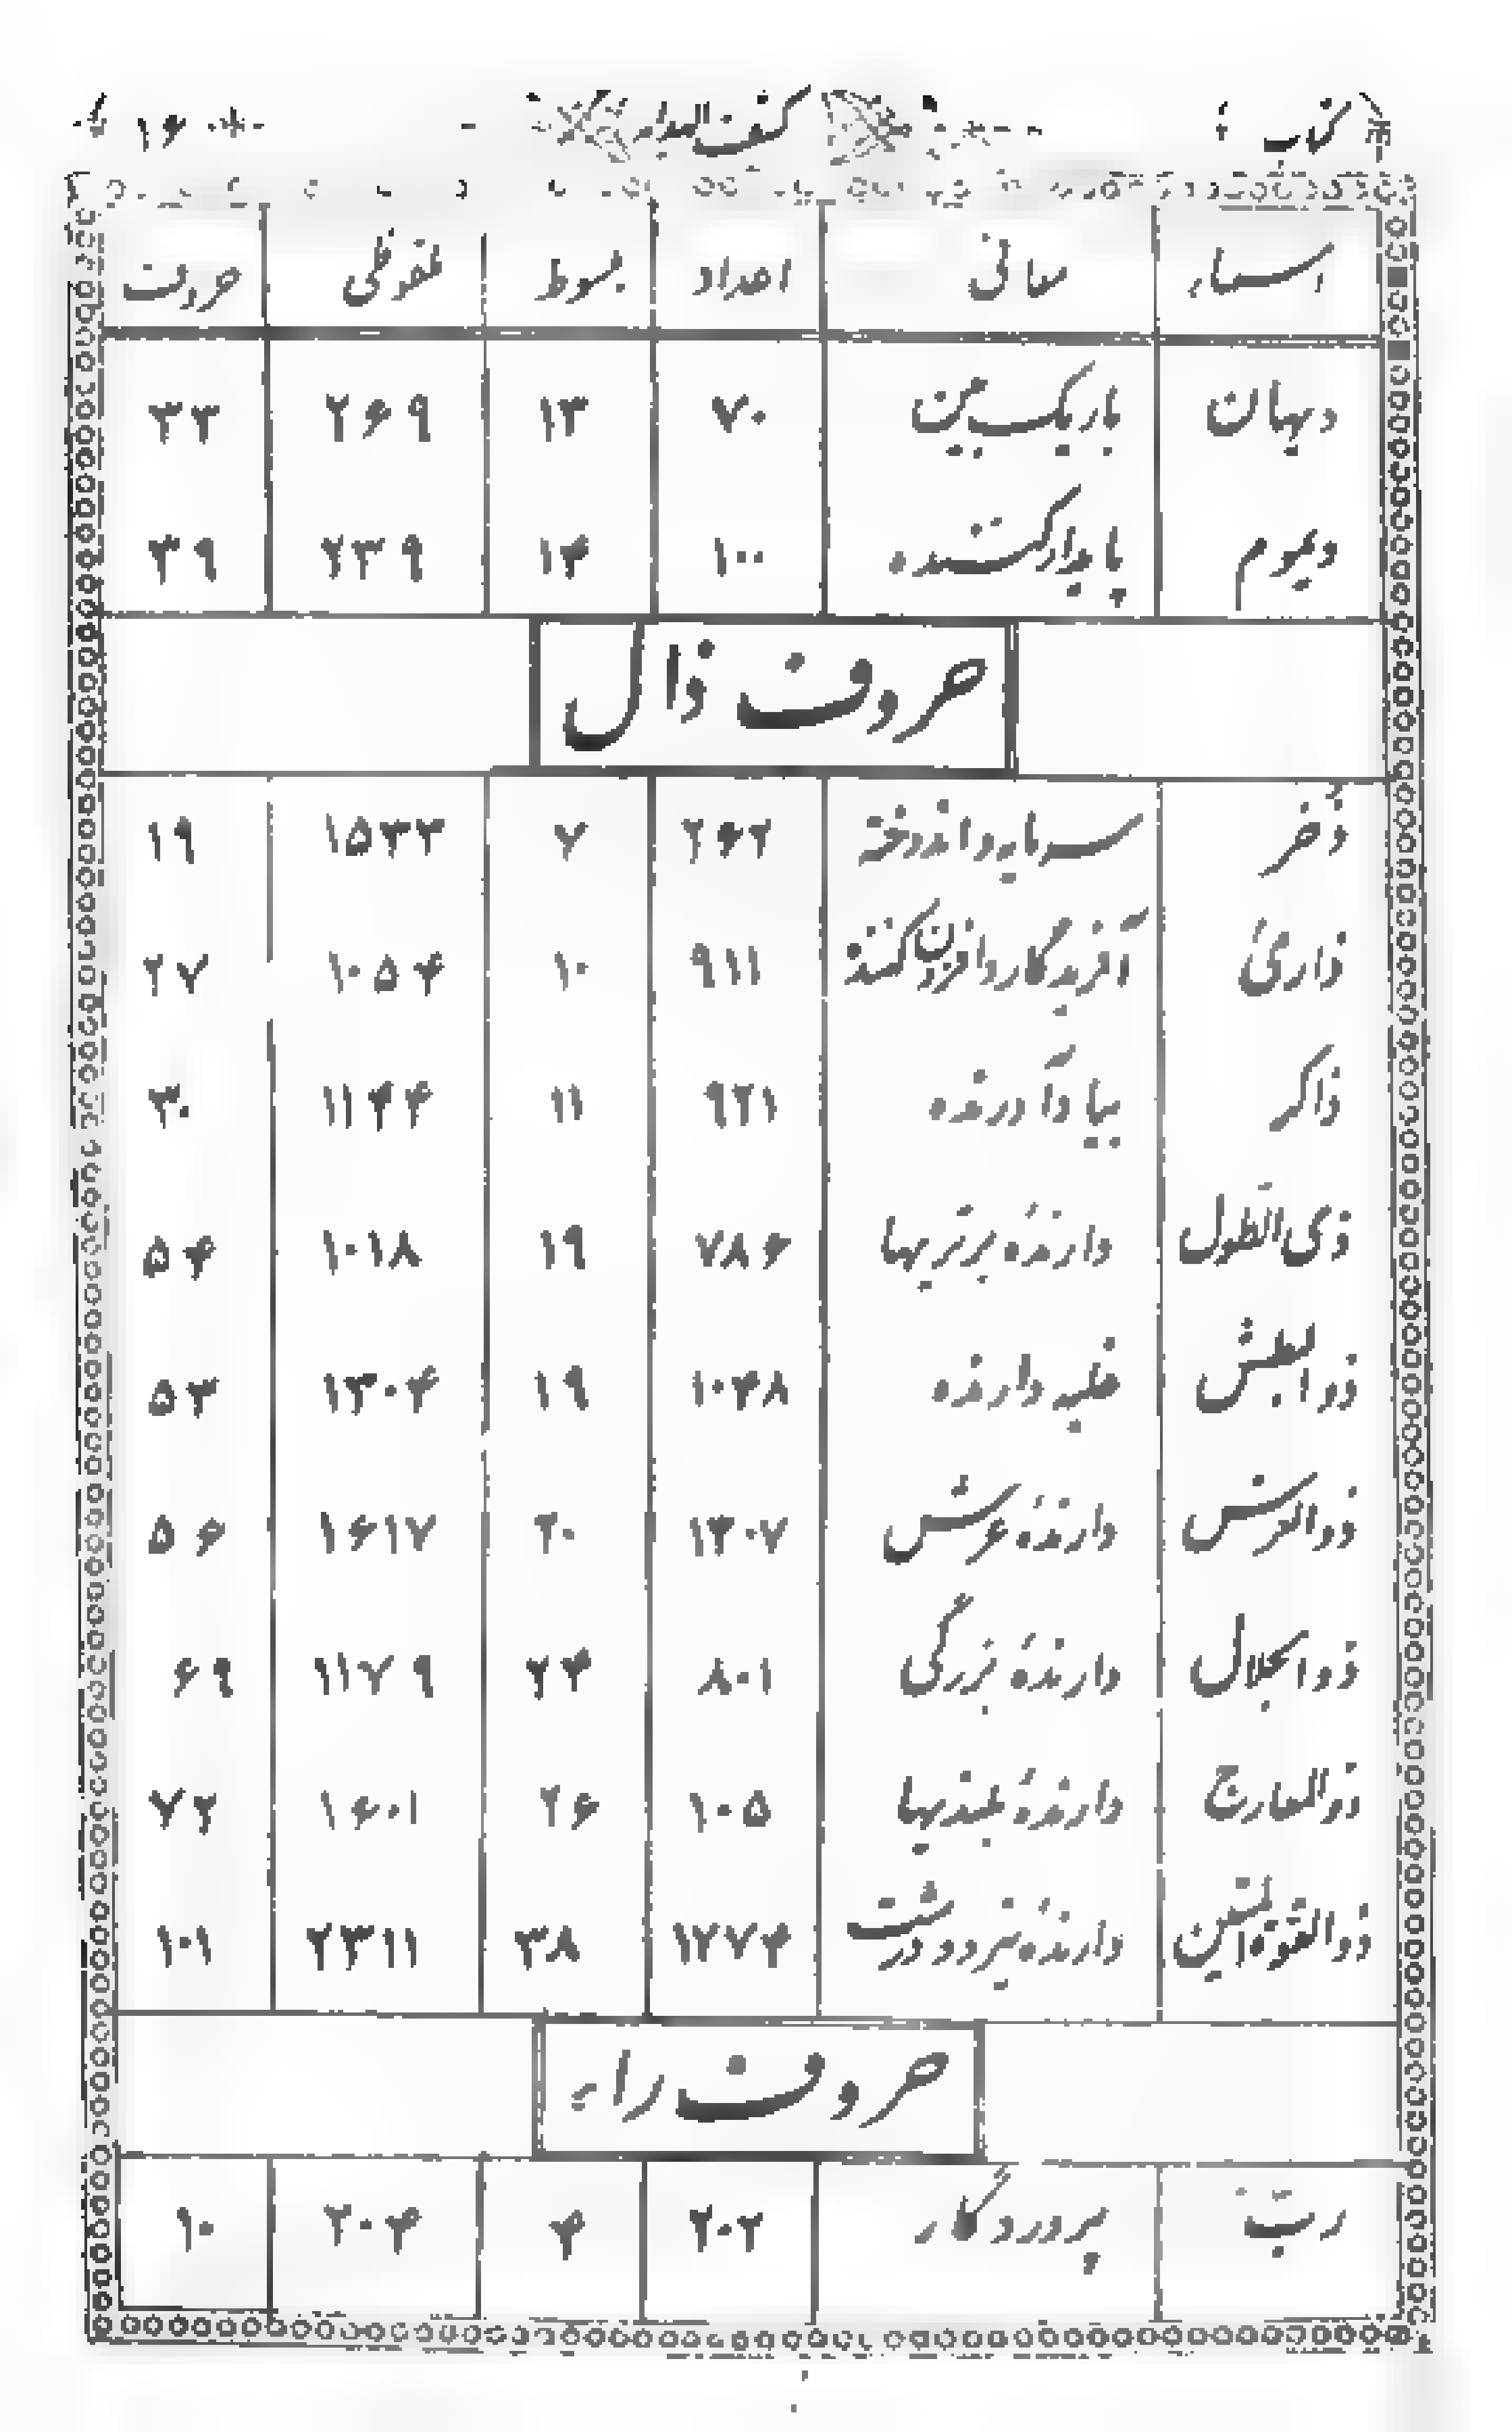 کتاب کشف الهدایه ۱۶۰
اسماء معانی اعداد مبسوط ملفوظی حروف
دیهان باریک بین ۷۰ ۱۳ ۲۶۹ ۳۳
دیموم پایدار کننده ۱۰۰ ۱۴ ۲۳۹ ۳۹
حروف ذال
ذخر سرمایه و اندوخته ۲۶۲ ۷ ۱۵۳۳ ۱۹
ذاریٔ آفریدگار و افزون کننده ۹۱۱ ۱۰ ۱۰۵۴ ۲۷
ذاکر بیاد آورنده ۹۲۱ ۱۱ ۱۱۴۴ ۳۰
ذی الطَّول دارندهٔ برتریها ۷۸۶ ۱۹ ۱۰۱۸ ۵۴
ذو البطش غلبه دارنده ۱۰۴۸ ۱۹ ۱۳۰۴ ۵۳
ذوالعرش دارندهٔ عرش ۱۳۰۷ ۲۰ ۱۶۱۷ ۵۶
ذوالجلال دارندهٔ بزرگی ۸۰۱ ۲۴ ۱۱۷۹ ۶۹
ذوالمعارج دارندهٔ بلندیها ۱۰۵ ۲۶ ۱۶۰۱ ۷۲
ذوالقوة المتین دارندهٔ نیرو و درشت ۱۷۷۴ ۳۸ ۲۳۱۱ ۱۰۱
حروف راء
ربّ پروردگار ۲۰۲ ۴ ۲۰۴ ۱۰